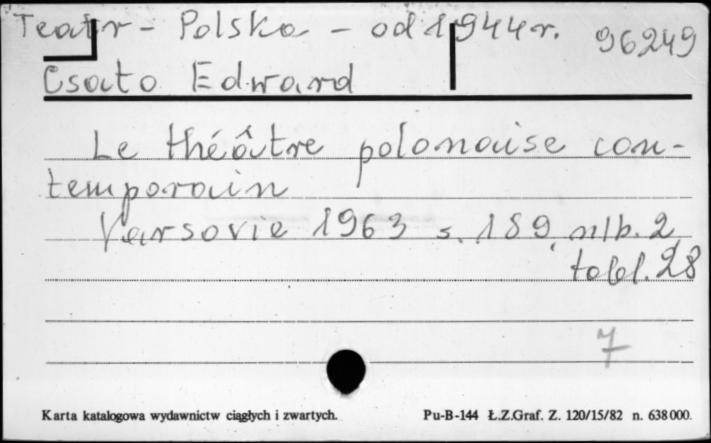 Teatr - Polska - od 1944 r. 96249
Csato Edward
Le théâtre polonaise con-
temporain
Varsovie 1963 s. 189, nlb. 2,
tabl. 28
7
Karta katalogowa wydawnictw ciągłych i zwartych. Pu-B-144 Ł.Z.Graf. Z. 120/15/82 n. 638 000.